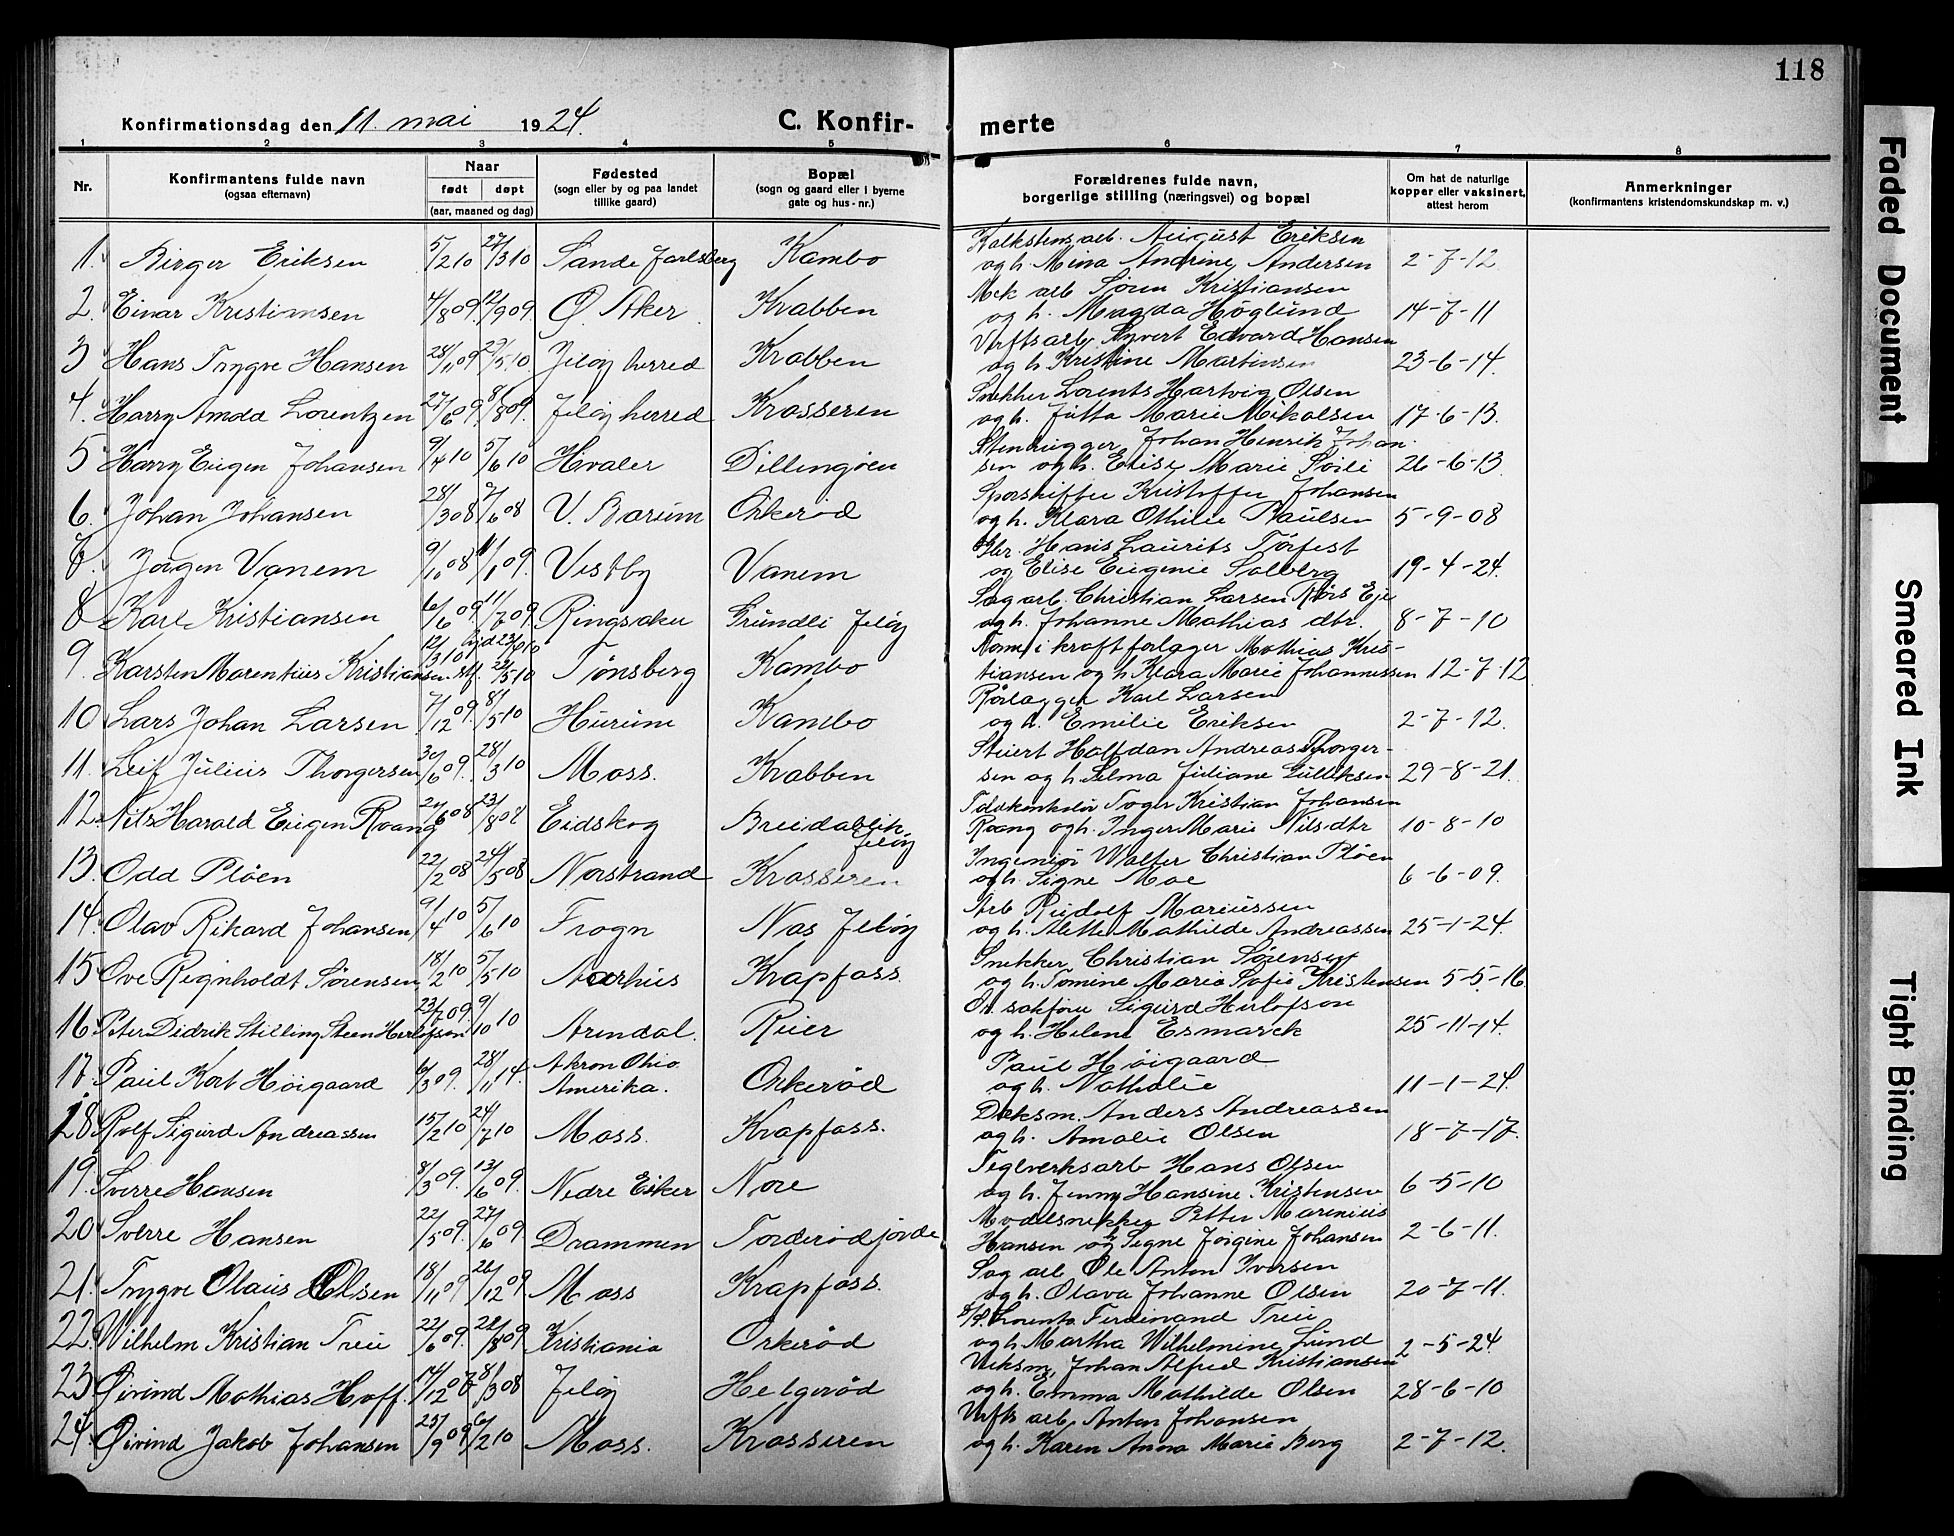 118
Konfirmationsdag den 11. mai 1924.
C. Konfirmerte
1 2 3 4 5 6 7 8
Nr.
Konfirmantens fulde navn
(ogsaa efternavn)
Naar
født døpt
(aar, maaned og dag)
Fødested
(sogn eller by og paa landet
tillike gaard)
Bopæl
(sogn og gaard eller i byerne
gate og hus-nr.)
Forældrenes fulde navn,
borgerlige stilling (næringsvei) og bopæl
Om hat de naturlige
kopper eller vaksinert,
attest herom
Anmerkninger
(konfirmantens kristendomskundskap m. v.)
1. Birger Eriksen 5/2 10 27/3 10 Sande Jarlsberg Kambo
Kalkstensarb. August Eriksen
og h. Mina Andrine Andersen 2-7-12
2. Einar Kristiansen 4/8 09 12/9 09 Ø. Aker Krabben
Mek arb Søren Kristiansen
og h. Magda Höglund 14-7-11
3 Hans Trygve Hansen 28/11 09 29/5 10 Jeløy herred Krabben
Verftsarb. Syvert Edvard Hansen
og h Kristine Martinsen 23-6-14.
4. Harry Amdd Lorentzen 27/6 09 8/8 09. Jeløy herred Krosseren
Snekker Lorents Hartvig Olsen
og h. Jutta Marie Mikalsen 17-6-13.
5 Harry Eugen Johansen 9/4 10 5/6 10 Hvaler Dillingøen
Stenhugger Johan Henrik Johan-
sen og h. Elise Marie Soili 26-6-13.
6. Johan Johansen 28/3 08 7/6 08 V. Bærum Orkerød
Sporskifter Kristoffer Johansen
og h. Klara Othilie Paulsen 5-9-08
7. Jørgen Vanem 9/10 08 11/1 09. Vestby Vanem
Gbr. Hans Laurits Torfest
og Elise Eugenie Solberg 19-4-24.
8 Karl Kristiansen 6/6 09 11/7 09. Ringsaker Grundli Jeløy
Sag arb. Christian Larsen Røis Eje
og h. Johanne Mathias dtr. 8-7-10
9. Karsten Marentius Kristiansen 12/3 10 22/5 10 Tønsberg Kambo
Tom i kraftforlager Mathias Kris-
tiansen og h Klara Marie Johannessen 12-7-12
10 Lars Johan Larsen 7/12 09. 8/5 10 Hurum Kambo
Rørlægger Karl Larsen
og h. Emilie Eriksen 2-7-12.
11. Leif Julius Thorgersen 30/6 09. 28/3 10 Moss. Krabben
Stuert Halfdan Andreas Thorger-
sen og h. Selma Juliane Gulliksen 29-8-21.
12. Nils Harald Eugen Roang 21/6 08 23/8 08 Eidskog Breidablik Jeløy
Toger Kristian Johansen
Roang og h. Inger Marie Nilsdtr 10-8-10
13. Odd Pløen 22/2 08 24/5 08 Norstrand Krosseren
Ingeniør Walter Christian Pløen
og h. Signe Moe 6-6-09.
14. Olav Rikard Johansen 9/4 10 5/6 10 Frogn Nas Jeløy
Arb Rudolf Mariussen
og h. Alette Mathilde Andreassen 25-1-24.
15 Ove Reignholdt Sørensen 18/2 10 5/5 10 Aarhus Krapfoss.
Snekker Christian Sørensen
og h. Tomine Marie Sofie Kristensen 5-5-16.
16. Peter Didrik Stilling Steen Herlofson 23/7 09. 9/10 10 Arendal. Reier
O.r. sakfører Sigurd Herlofson
og h. Helene Esmarck 25-11-14.
17. Paul Kort Høigaard 6/3 09. 28/11 14. Akron Ohio Amerika. Orkerød
Paul Høigaard
og h. Nathalie 11-1-24.
18 Rolf Sigurd Andreassen 15/2 10 24/7 10 Moss. Krapfoss.
Dæksm. Anders Andreassen
og h. Amalie Olsen 18-7-17.
19. Sverre Hansen 8/3 09. 13/6 09. Nedre Eiker Nore
Teglverksarb Hans Olsen
og h. Jenny Hansine Kristensen 6-5-10
20 Sverre Hansen 22/5 09. 27/6 09 Drammen Torderødjorde
Modelsnekker Petter Marenius
Hansen og Signe Jørgine Johansen 2-6-11.
21. Trygve Olaus Olsen 18/11 09 26/12 09. Moss Krapfoss.
Sag arb Ole Anton Iversen
og h. Olava Johanne Olsen 20-7-11.
22. Wilhelm Kristian Treu 22/6 09. 22/8 09 Kristiania Orkerød
Lorentz Ferdinand Treu
og h. Martha Wilhelmine Lund 2-5-24
23 Øivind Mathias Hoff. 14/12 07 8/3 08 Jeløy Helgerød
Verksm. Johan Alfred Kristiansen
og h. Emma Mathilde Olsen 28-6-10
24. Øivind Jakob Johansen 25/9 09 6/2 10 Moss. Krosseren
Verfts arb. Anton Johansen
og h. Karen Anna Marie Berg 2-7-12.
Faded Document
Smeared Ink
Tight Binding